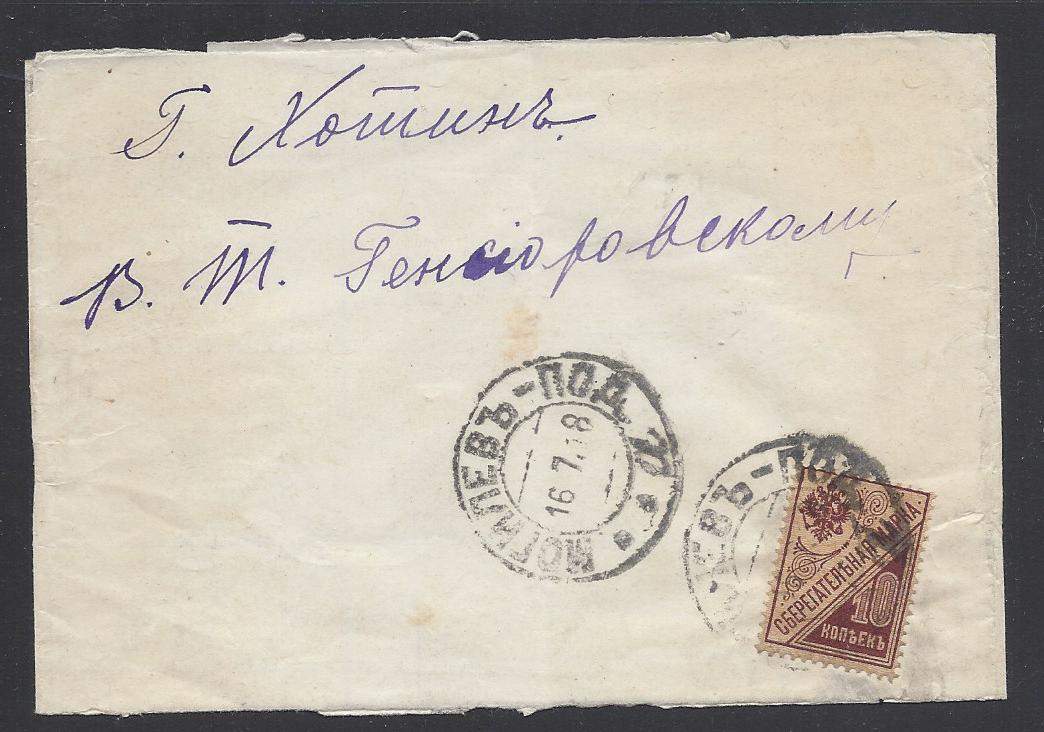 Г. Хотинъ.
В. Т. Генсіоровскому
МОГИЛЕВЪ-ПОД.
16 7.18
ЛЕВЪ-ПОД
СБЕРЕГАТЕЛЬНАЯ МАРКА.
10
КОПѢЕКЪ